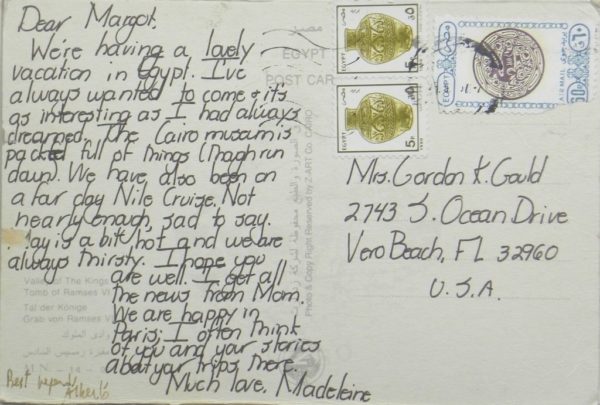 Dear Margot.
We're having a lovely
vacation in Egypt. I've
always wanted to come & its
as interesting as I had always
dreamed. The Cairo museum is
packed full of things (though run
down). We have also been on
a four day Nile Cruise. Not
nearly enough, sad to say.
day is a bit hot and we are
always thirsty. I hope you
are well. I get all
the news from Mom.
We are happy in
Paris; I often think
of you and your stories
about your trips there.
Much love, Madeleine
Best
Mrs. Gordon K. Gould
2743 S. Ocean Drive
Vero Beach, FL 32960
U.S.A.
مصر
EGYPT
POST CAR
Valley of The Kings
Tomb of Ramses VI
Tal der Könige
Grab von Ramses VI
وادى الملوك
مقبرة رمسيس السادس
Photo & Copy Right Reserved by Z-ART Co. CAIRO
EGYPT
5P
EGYPT
5P
EGYPT
AIR MAIL